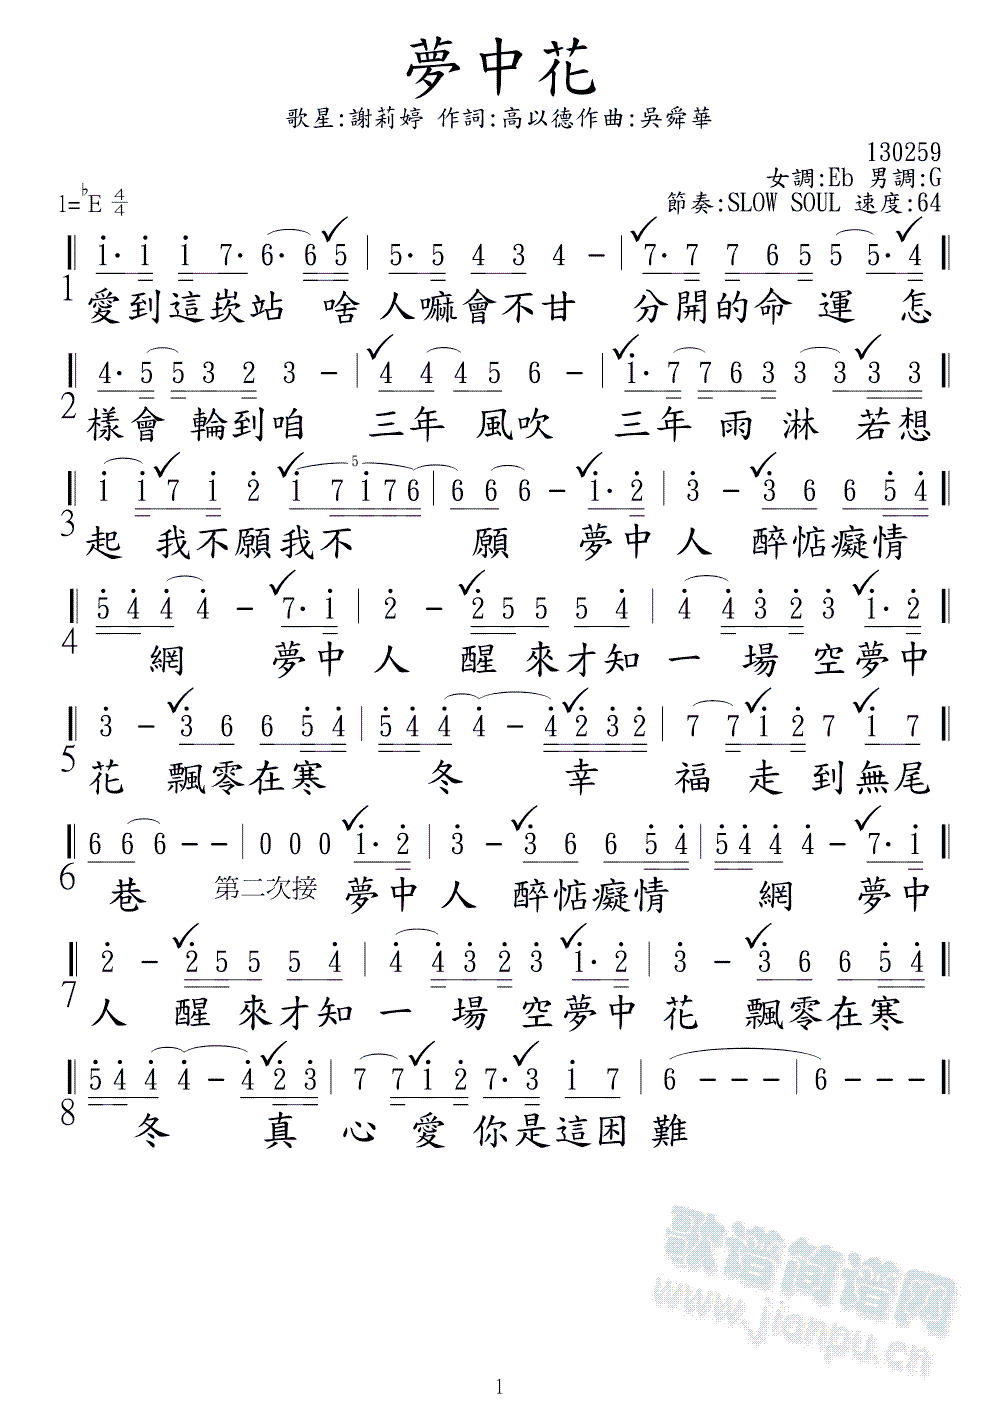 夢中花
歌星:謝莉婷 作詞:高以德作曲:吳舜華
130259
女調:Eb 男調:G
節奏:SLOW SOUL 速度:64
1=♭E 4/4
1
i· i i 7· 6· 6 5 | 5· 5 4 3 4 − | 7· 7 7 6 5 5 5· 4
愛到這崁站 啥 人嘛會不甘 分開的命 運 怎
2
4· 5 5 3 2 3 − | 4 4 4 5 6 − | i· 7 7 6 3 3 3 3 3
樣會 輪到咱 三年 風吹 三年 雨 淋 若想
3
i i 7 i 2 i 7 i 7 6 | 6 6 6 − i· 2̇ | 3̇ − 3̇ 6 6 5̇ 4̇
5
起 我不願我不 願 夢中 人 醉惦癡情
4
5̇ 4̇ 4̇ 4̇ − 7· i | 2̇ − 2̇ 5 5 5 4̇ | 4̇ 4̇ 3̇ 2̇ 3̇ i· 2̇
網 夢中 人 醒 來才知 一 場 空夢中
5
3̇ − 3̇ 6 6 5̇ 4̇ | 5̇ 4̇ 4̇ 4̇ − 4̇ 2̇ 3̇ 2̇ | 7 7 i 2̇ 7 i 7
花 飄零在寒 冬 幸 福 走 到無尾
6
6 6 6 − − | 0 0 0 i· 2̇ | 3̇ − 3̇ 6 6 5̇ 4̇ | 5̇ 4̇ 4̇ 4̇ − 7· i
巷 第二次接 夢中 人 醉惦癡情 網 夢中
7
2̇ − 2̇ 5 5 5 4̇ | 4̇ 4̇ 3̇ 2̇ 3̇ i· 2̇ | 3̇ − 3̇ 6 6 5̇ 4̇
人 醒 來才知 一 場 空夢中 花 飄零在寒
8
5̇ 4̇ 4̇ 4̇ − 4̇ 2̇ 3̇ | 7 7 i 2̇ 7· 3̇ i 7 | 6 − − − | 6 − − −
冬 真 心 愛 你是這困 難
歌谱简谱网
www.jianpu.cn
1